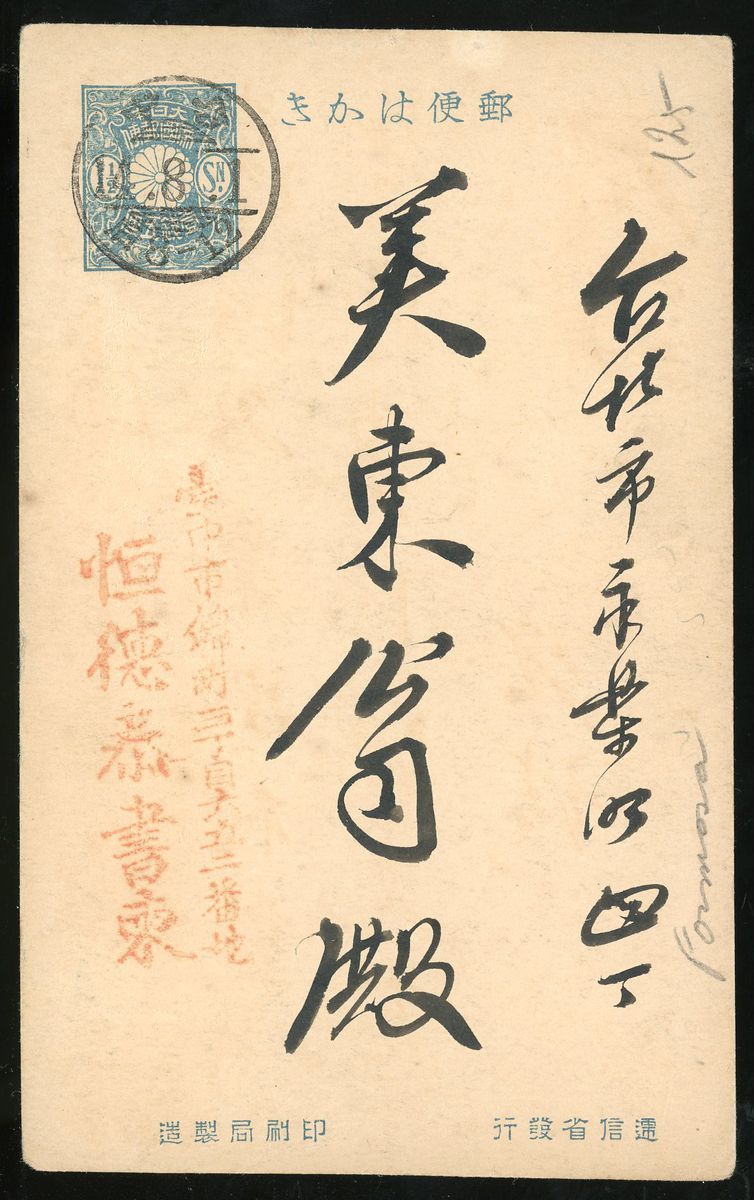 郵便はかき
大日本
帝國郵便
1½ SN
8.1
8-12
125
台北市永楽町四丁
Formosa
美東公司殿
臺中市錦町三丁目六五二番地
恒德泰書柬
遞信省發行
印刷局製造